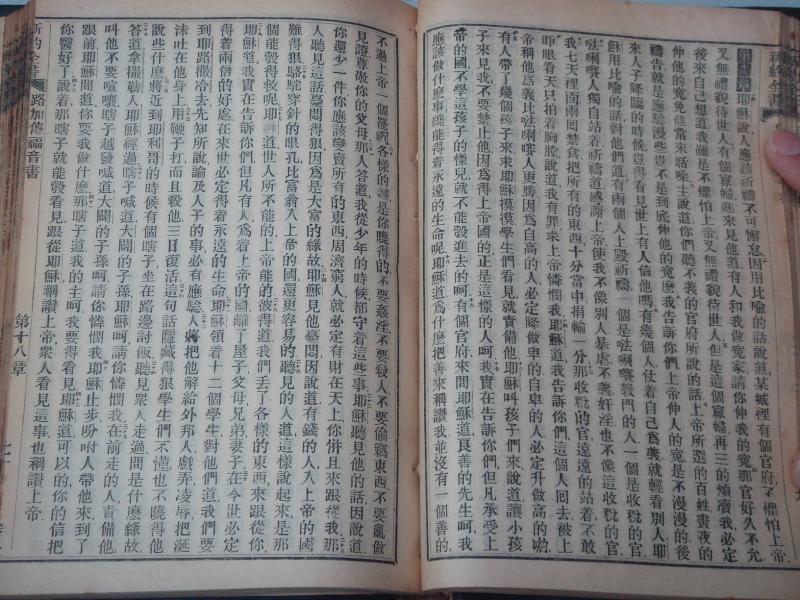 新約全書
第十八章耶穌說人應該祈禱不可懈怠因用比喻的話說道某城裡有個官府不懼怕上帝
又無禮貌待世人有個寡婦進來見他道有人和我做冤家請你伸我的冤那官好久不允
後來自己想道我雖是不懼怕上帝又無禮貌待世人但是這個寡婦再三的煩瀆我必定
伸他的冤免他當來聒噪主說道你們聽不義的官府所說的話上帝所選的百姓晝夜的
禱告就是應驗漫些豈不是到底伸他的冤麼我告訴你們上帝伸人的冤是不漫漫的後
來人子降臨的時候豈得看見世上有人信他嗎有幾個人仗着自己爲義就輕看別人耶
穌用比喻的話對他們道有兩個人上殿祈禱一個是𠵽唎㘔教門的人一個是收稅的官
𠵽唎㘔人獨自站着祈禱道感謝上帝使我不像別人暴虐不義奸淫也不像這收稅的官
我七天裡面兩回禁食把所有的東西十分當中捐輸一分那收稅的官遠遠的站着不敢
睜眼看天只拍着胸膛說道我有罪求上帝憐憫我耶穌道我告訴你們這個人回去被上
帝稱他爲義比𠵽唎㘔人更勝因爲自高的人必定降做卑的自卑的人必定升做高的喲
有人帶了幾個孩子來求耶穌摸摸學生們看見就責備他耶穌叫孩子們來說道讓小孩
子來見我不要禁止他因爲得上帝國的正是這樣的人呵我實在告訴你們但凡承受上
帝的國不學這孩子的樣兒就不能彀進去的呵有個官府來問耶穌道良善的先生呵我
應該做什麼事纔能彀得着永遠的生命呢耶穌道爲什麼把善來稱讚我並沒有一個善的
不過上帝一個罷所各樣的誡是你曉得的不要姦淫不要殺人不要偷竊東西不要亂做
見證尊敬你的父母那人答道我從少年的時候都守着這些事耶穌聽見他的話因說道
你還少一件你應該變賣所有的東西周濟窮人就必定有財在天上你併且來跟從我那
人聽見這話憂悶得狠因爲是大富的緣故耶穌見他憂悶因說道有錢的人入上帝的國
難得狠駱駝穿針的眼孔比富翁入上帝的國還更容易的聽見的人道這樣說起來是那
個能彀得救呢耶穌道世人所不能的上帝能的彼得道我們丟了各樣的東西來跟從你
耶穌道我實在告訴你們但凡有人爲着上帝的國離了屋子父母兄弟妻子在今世必定
得着兩倍的好處在來世必定得着永遠的生命耶穌領着十二個學生對他們道我們要
到耶路撒冷去先知所說論及人子的事必有應驗人將把他解給外邦人戲弄凌辱把涎
沫吐在他身上用鞭子打而且殺他三日復活這句話隱藏得狠學生們不懂也不曉得他
說些什麼將近到耶利哥的時候有個瞎子坐在路邊討飯聽見衆人走過問是什麼緣故
答道拿撒勒人耶穌經過瞎子喊道大闢的子孫耶穌呵請你憐憫我在前走的人責備他
叫他不要喧嚷瞎子越發喊道大闢的子孫呵請你憐憫我耶穌止步吩咐人帶他來到了
跟前耶穌問道你要我做什麼那瞎子道我的主呵我要得看見耶穌道可以的你的信把
你醫好了說着那瞎子就能彀看見跟從耶穌稱讚上帝衆人看見這事也稱讚上帝
新約全書
路加傳福音書
第十八章